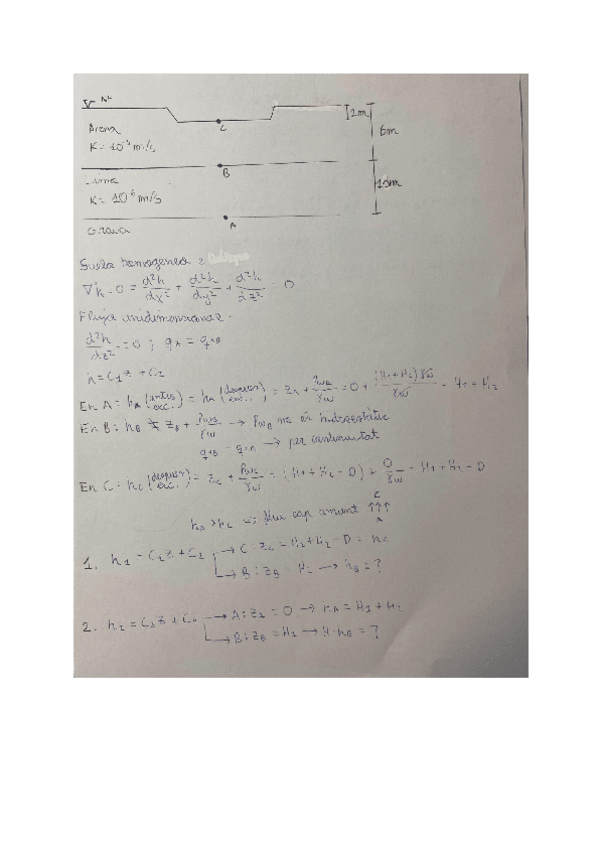 N
C
2m
Arena
K = 10⁻⁴ m/s
6m
B
K = 10⁻⁶ m/s
10m
A
Grava
Suelo homogeneo :
∇²h = 0 = d²h/dx² + d²h/dy² + d²h/dz² = 0
Flujo unidimensional :
d²h/dz² = 0 ;
h = C₁z + C₂
En A : hA (antes exc.) = hA (después exc.) = zA + PwA/γw = 0 + (H₁+H₂)γw/γw = H₁ + H₂
En B : hB ≠ zB + PwB/γw → PwB no es hidrostàtic
→ per continuitat
En C : hC (después exc.) = zC + PwC/γw = (H₁ + H₂ - D) + 0/γw = H₁ + H₂ - D
hA > hC ⇒ flux cap amunt ↑↑↑
C
A
1. h₁ = C₁z + C₂ → C : zC = H₁+H₂-D = hC
→ B : zB = H₂ → hB = ?
2. h₂ = C₃z + C₄ → A : zA = 0 → hA = H₁ + H₂
→ B : zB = H₁ → hB = ?